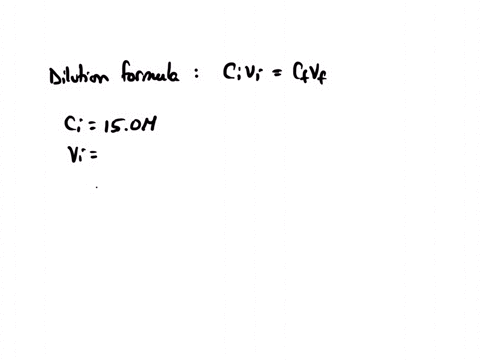 Dilution formula : CiVi = CfVf
Ci = 15.0M
Vi =